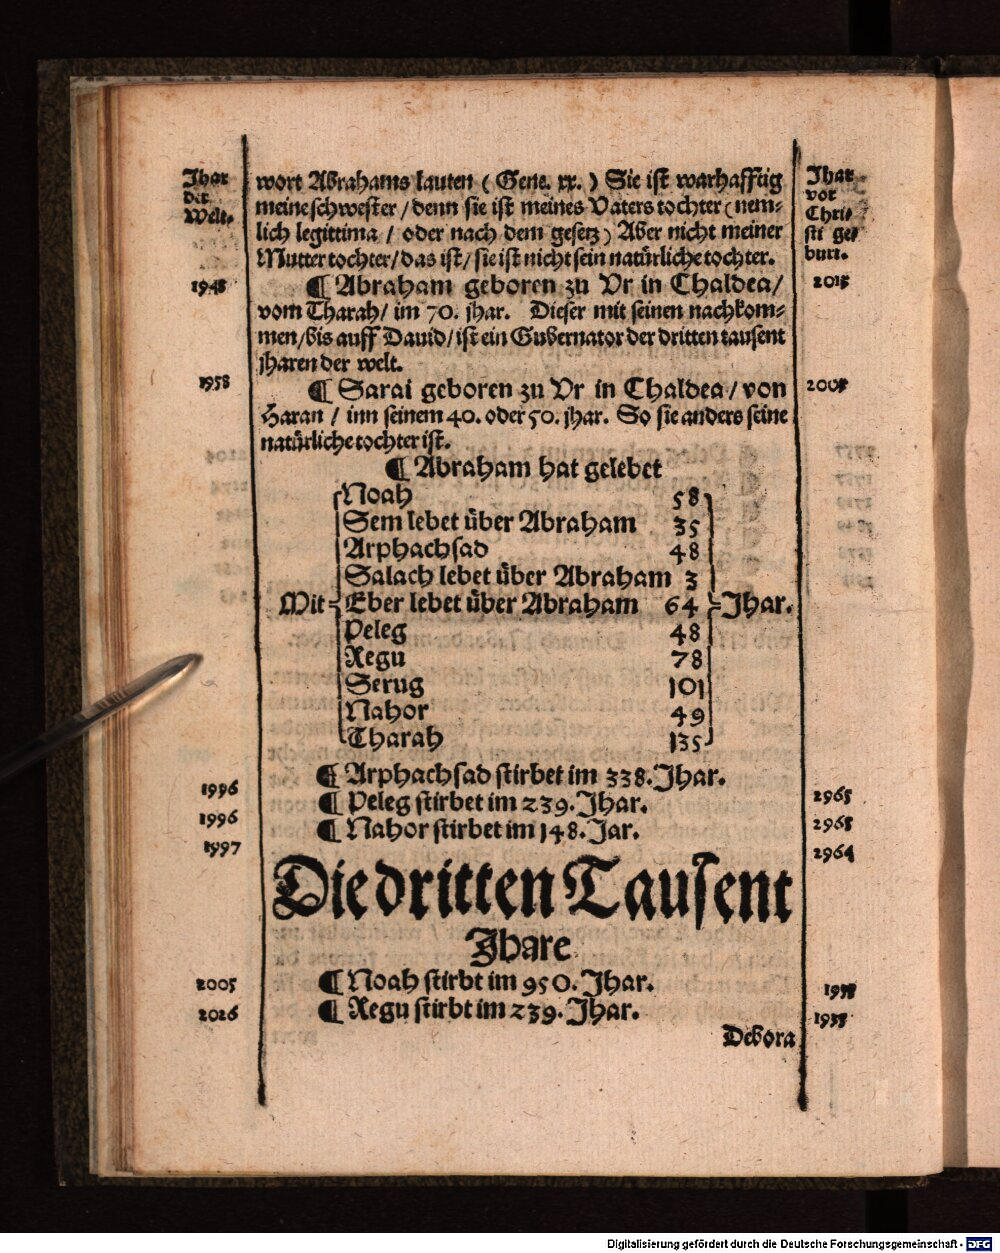 Jhar
der
Welt.
Jhar
vor
Chri-
sti ge-
burt.
wort Abrahams lauten ( Gene. xx. ) Sie ist warhafftig
meine schwester / denn sie ist meines Vaters tochter ( nem-
lich legittima / oder nach dem gesetz ) Aber nicht meiner
Mutter tochter / das ist / sie ist nicht sein natürliche tochter.
1948 ¶ Abraham geboren zu Vr in Chaldea / 2015
vom Tharah / im 70. jhar. Dieser mit seinen nachkom-
men / bis auff Dauid / ist ein Gubernator der dritten tausent
jharen der welt.
1958 ¶ Sarai geboren zu Vr in Chaldea / von 2005
Haran / inn seinem 40. oder 50. jhar. So sie anders seine
natürliche tochter ist.
¶ Abraham hat gelebet
Noah 58
Sem lebet über Abraham 35
Arphachsad 48
Salach lebet über Abraham 3
Mit Eber lebet über Abraham 64 Jhar.
Peleg 48
Regu 78
Serug 101
Nahor 49
Tharah 135
1996 ¶ Arphachsad stirbet im 338. Jhar. 2965
1996 ¶ Peleg stirbet im 239. Jhar. 2965
1997 ¶ Nahor stirbet im 148. Jar. 2964
Die dritten Tausent
Jhare
2005 ¶ Noah stirbt im 950. Jhar.
2026 ¶ Regu stirbt im 239. Jhar.
Debora
Digitalisierung gefördert durch die Deutsche Forschungsgemeinschaft - DFG